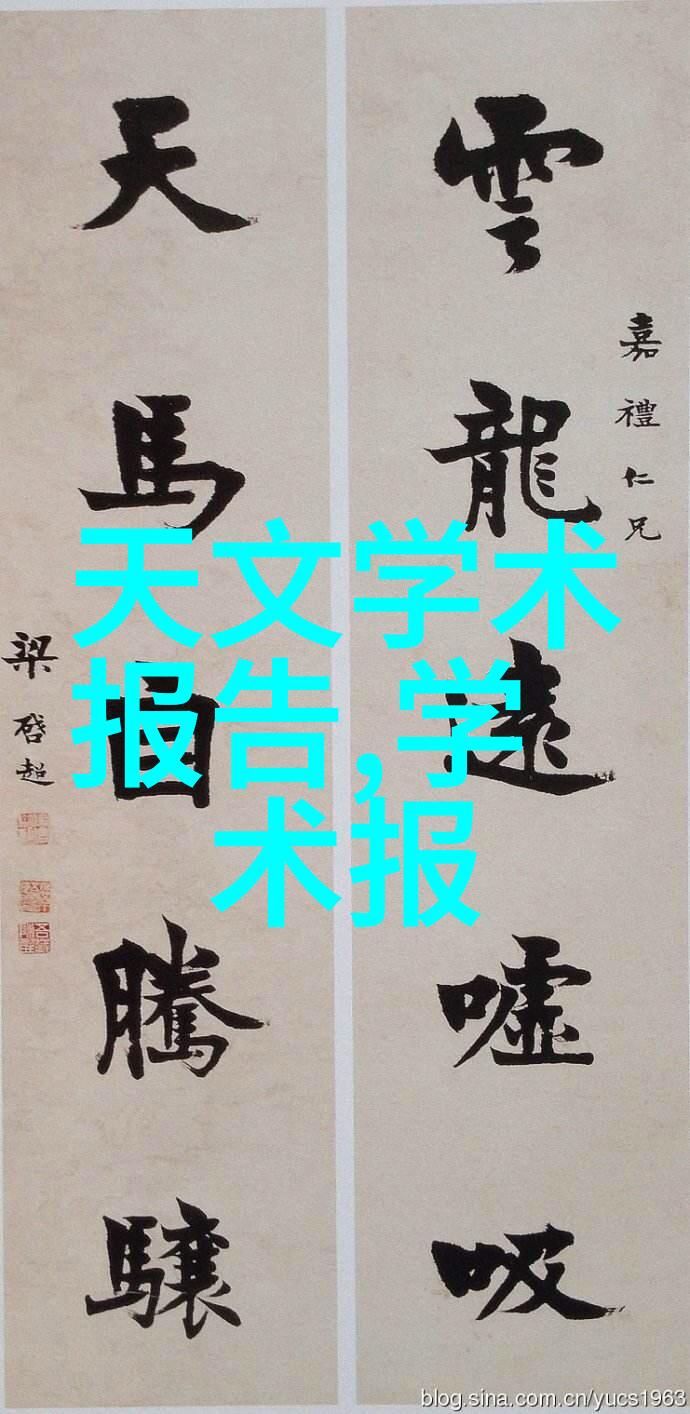 雲龍遠噓吸
嘉禮仁兄
天馬自騰驤
梁啓超
天文学术
报告,学
术报
blog.sina.com.cn/yucs1963